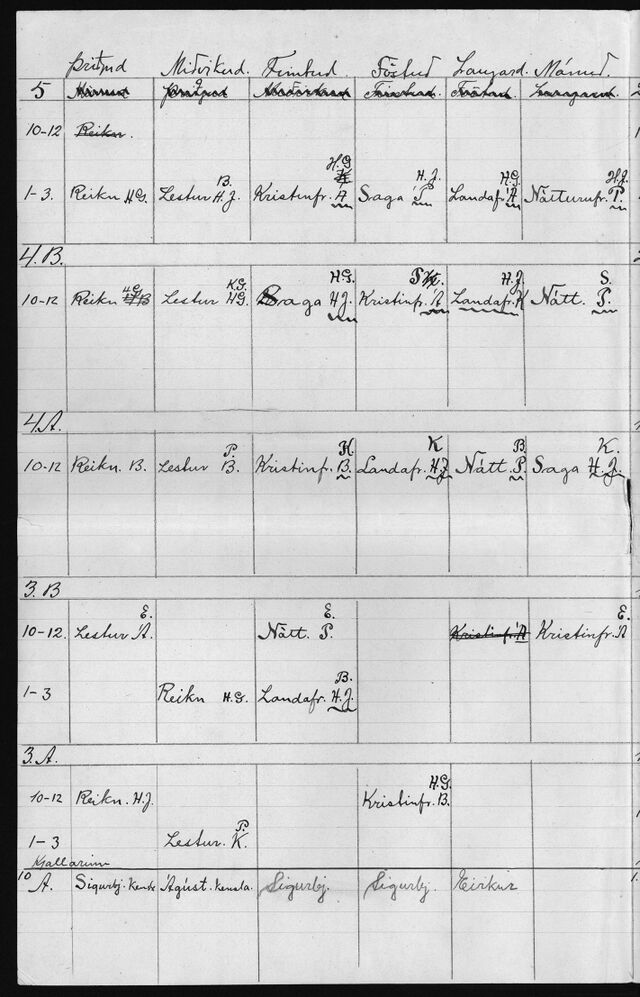 Þriðjud Miðvikud. Fimtud. Föstud Laugard. Mánud.
5
10-12 Reikn.
H.G.
B. H.J. H.G. H.J.
1-3. Reikn H.G. Lestur H.J. Kristinfr. A Saga P Landafr. A Nátturufr. P.
4.B.
H.G. K.G. H.G. H.J. S.
10-12 Reikn B Lestur H.G. Saga H.J. Kristinfr. A Landafr. K Nátt. P.
4.A.
P. H. K B. K.
10-12 Reikn. B. Lestur B. Kristinfr. B. Landafr. H.J. Nátt. P. Saga H.J.
3.B
E. E. E.
10-12. Lestur A. Nátt. P. Kristinfr. A Kristinfr. A
B.
1-3 Reikn H.G. Landafr. H.J.
3.A.
H.G.
10-12 Reikn. H.J. Kristinfr. B.
P.
1-3 Lestur. K.
Kjallarinn
10 A. Sigurbj. Kensla Ágúst. Kensla. Sigurbj. Sigurbj. Eirikur